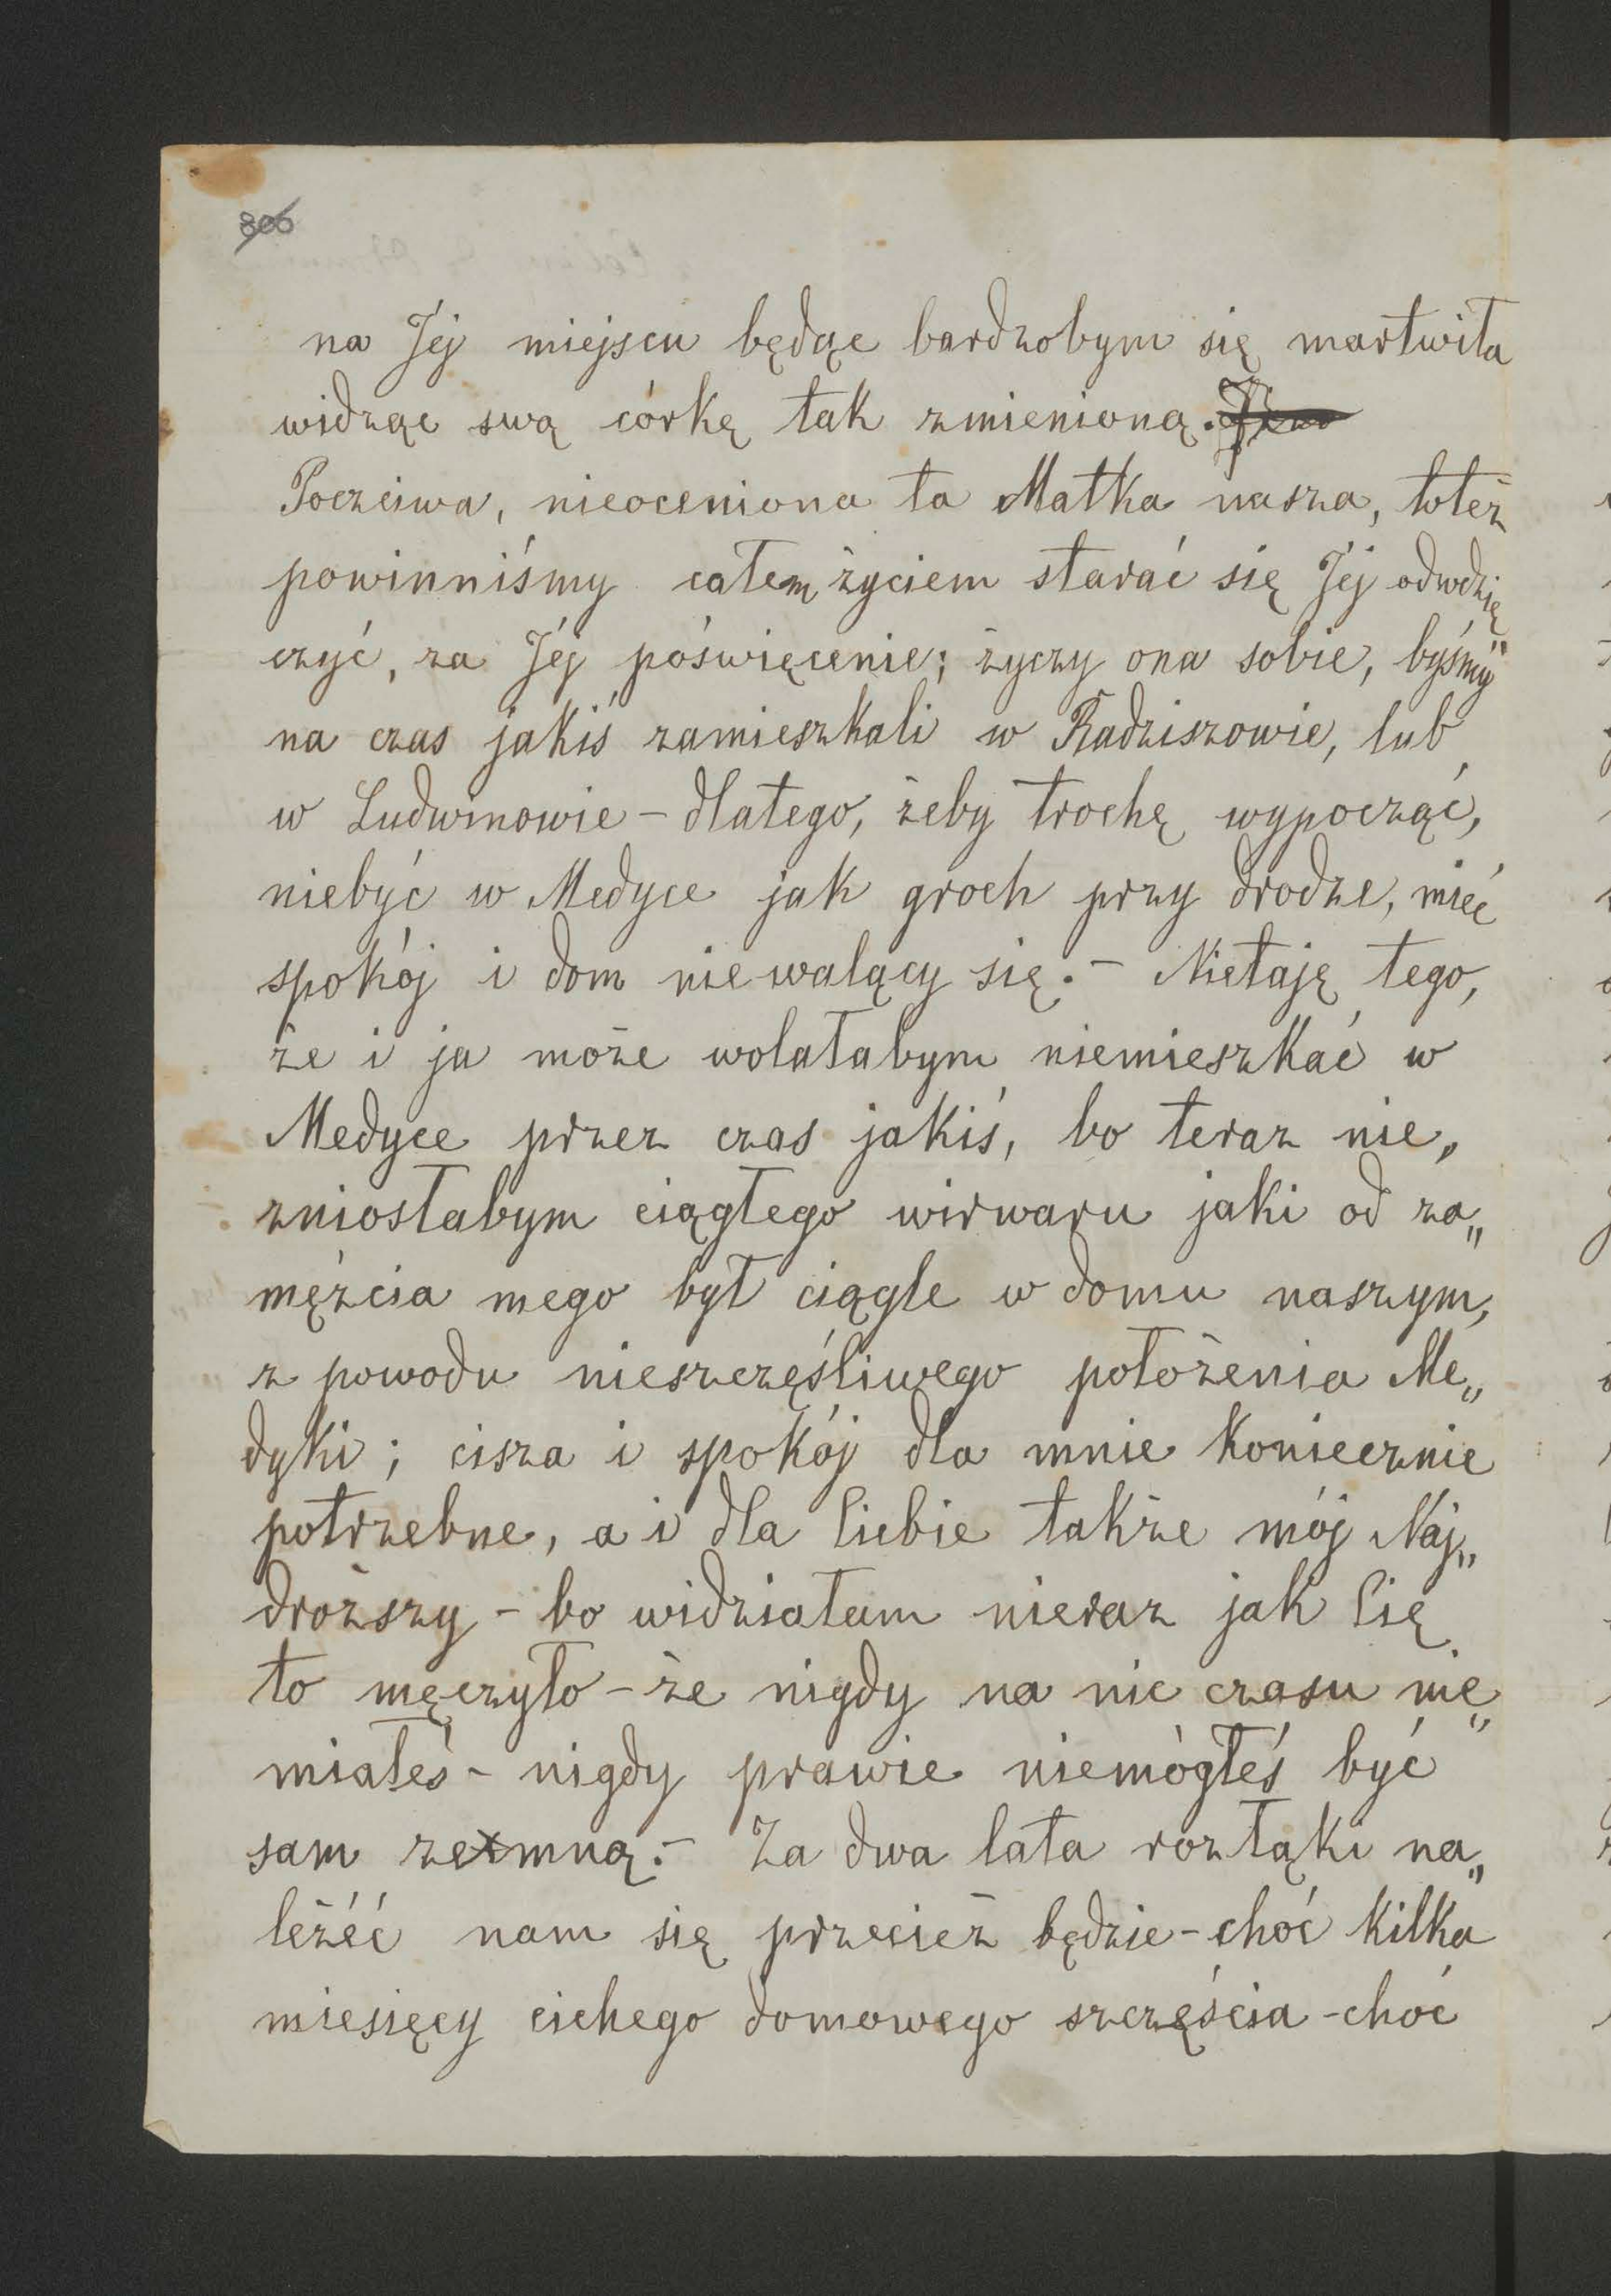 306
na Jéj miejscu będąc bardzobym się martwiła
widząc swą córkę tak zmienioną.
Poczciwa, nieoceniona ta Matka nasza, toteż
powinniśmy całem życiem starać się Jéj odwdzię„
czyć, za Jéj poświęcenie; życzy ona sobie, byśmy
na czas jakiś zamieszkali w Radziszowie, lub
w Ludwinowie - dlatego, żeby trochę wypocząć,
niebyć w Medyce jak groch przy drodze, mieć
spokój i dom niewalący się. - Nietaję tego,
że i ja może wolałabym niemieszkać w
Medyce przez czas jakiś, bo teraz nie„
zniosłabym ciągłego wirwaru jaki od za„
mężcia mego był ciągle w domu naszym,
z powodu nieszczęśliwego położenia Me„
dyki; cisza i spokój dla mnie koniecznie
potrzebne, a i dla Ciebie także mój Naj„
droższy - bo widziałam nieraz jak Cię
to męczyło - że nigdy na nic czasu nie„
miałeś - nigdy prawie niemógłeś być
sam zemną. - Za dwa lata rozłąki na„
léżéć nam się przecież będzie - choć kilka
miesięcy cichego domowego szczęścia - choć